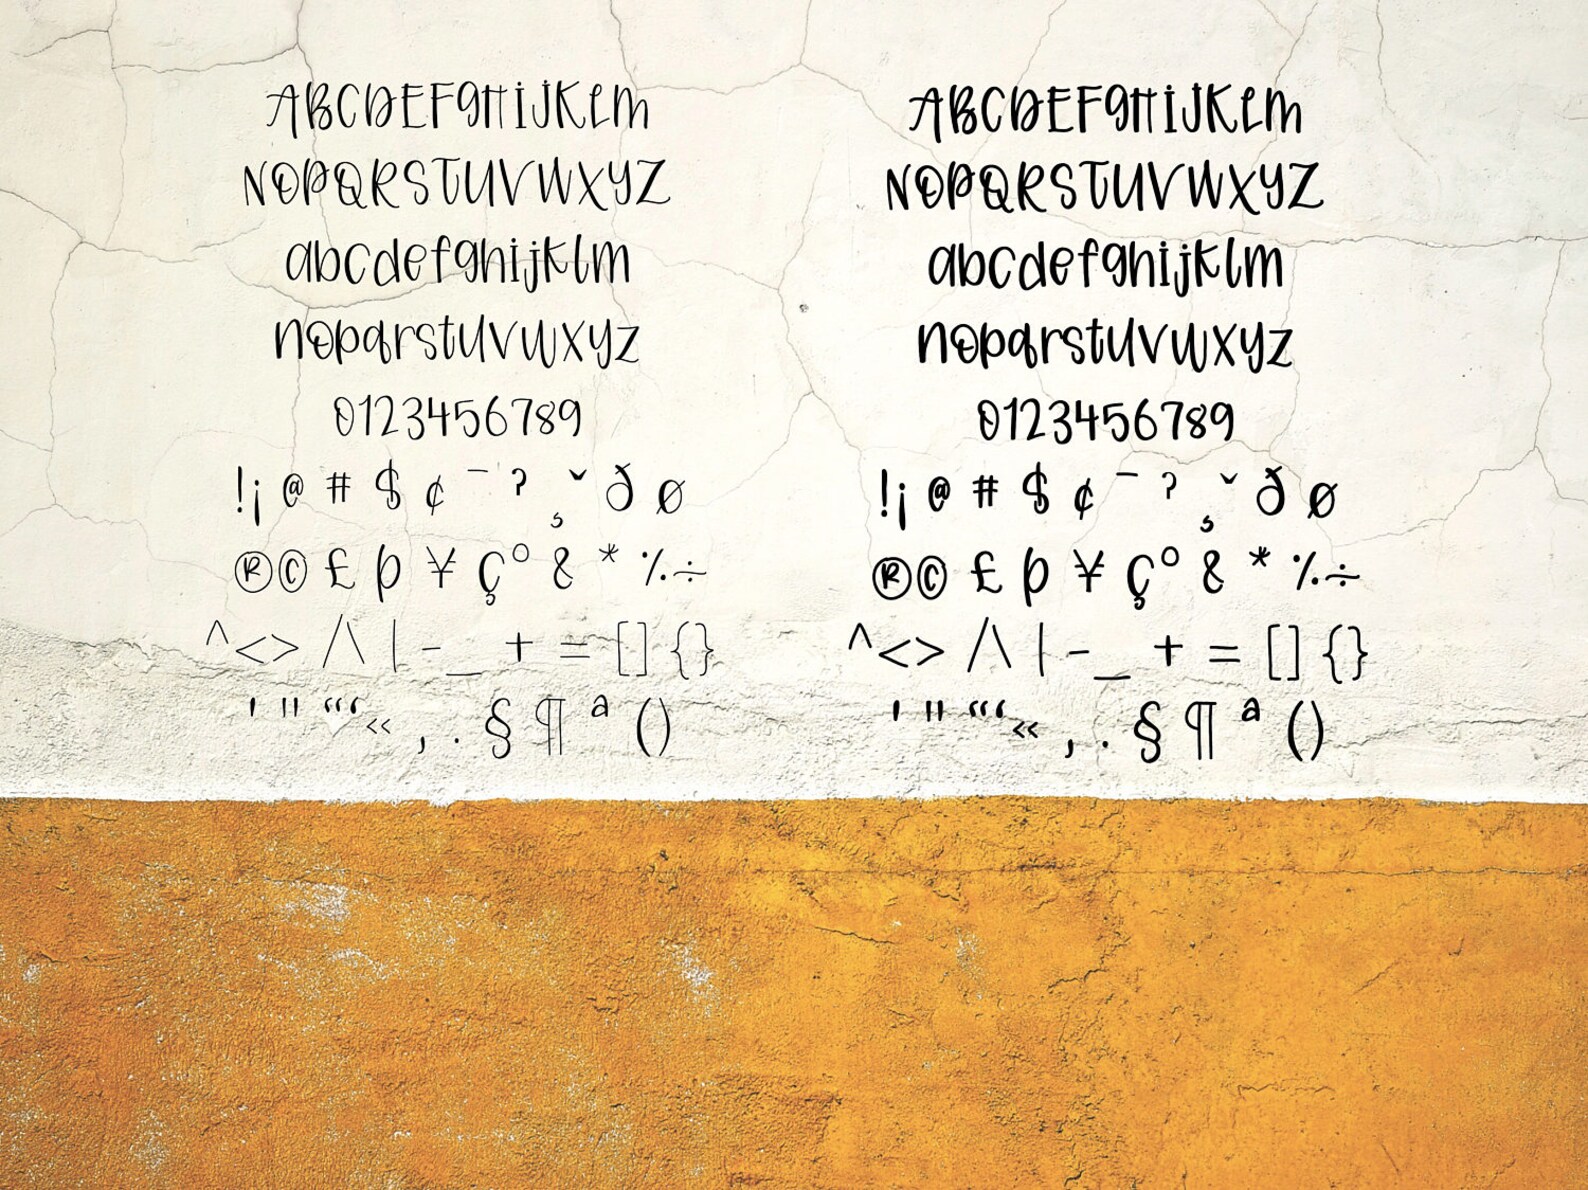 ABCDEFGHIJKLM
NOPQRSTUVWXYZ
abcdefghijklm
nopqrstuvwxyz
0123456789
!¡ @ # $ ¢ ¯ ? ¸ ˇ ð ø
®© £ þ ¥ ç° & * %÷
^<> /\ | - _ + = [] {}
' " “‘« , . § ¶ ª ()
ABCDEFGHIJKLM
NOPQRSTUVWXYZ
abcdefghijklm
nopqrstuvwxyz
0123456789
!¡ @ # $ ¢ ¯ ? ¸ ˇ ð ø
®© £ þ ¥ ç° & * %÷
^<> /\ | - _ + = [] {}
' " “‘« , . § ¶ ª ()